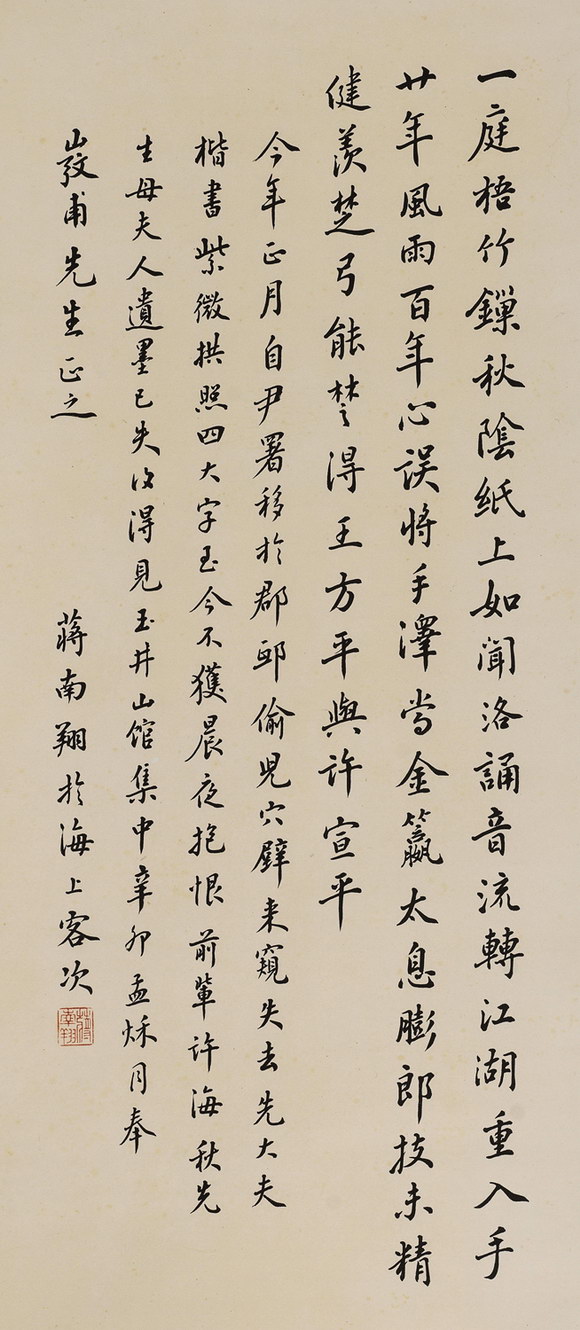 一庭梧竹鏁秋陰紙上如聞洛誦音流轉江湖重入手
廿年風雨百年心誤將手澤當金籯太息膨郎技未精
健羨楚弓能楚得王方平與許宣平
今年正月自尹署移於郡邸偷兒穴壁来窺失去先大夫
楷書紫微拱照四大字至今不獲晨夜抱恨前輩許海秋先
生母夫人遺墨已失復得見玉井山館集中辛卯孟秌月奉
甫先生正之 蔣南翔於海上客次